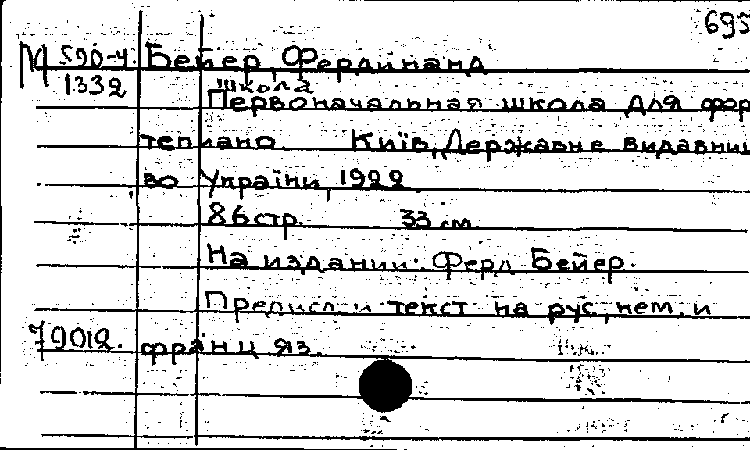 695
М 590-4 Бейер, Фердинанд
1332 школа
Первоначальная школа для фор
тепиано. Київ, Державне видавниц
во України, 1922.
86 стр. 33 см.
На издании: Ферд Бейер.
Предисл. и текст на рус, нем. и
79012. франц яз.